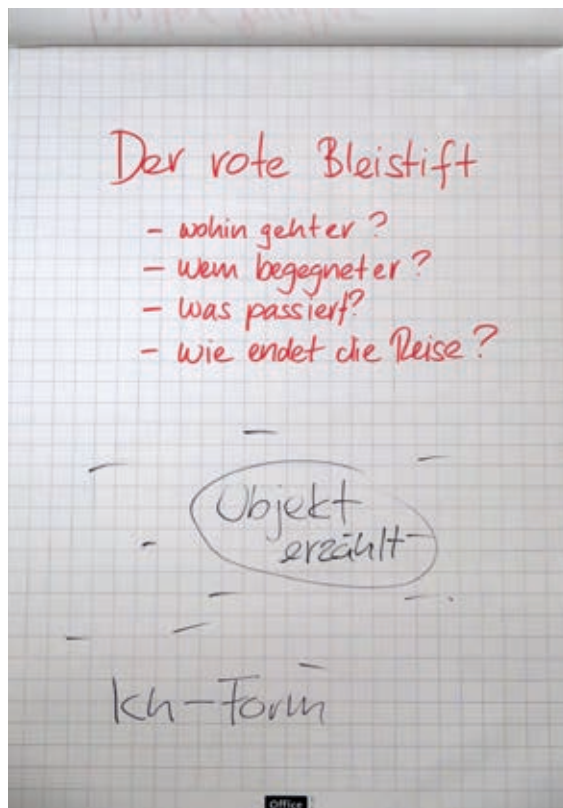 Der rote Bleistift
- wohin geht er?
- wem begegnet er?
- was passiert?
- wie endet die Reise?
Objekt
erzählt
Ich-Form
Office